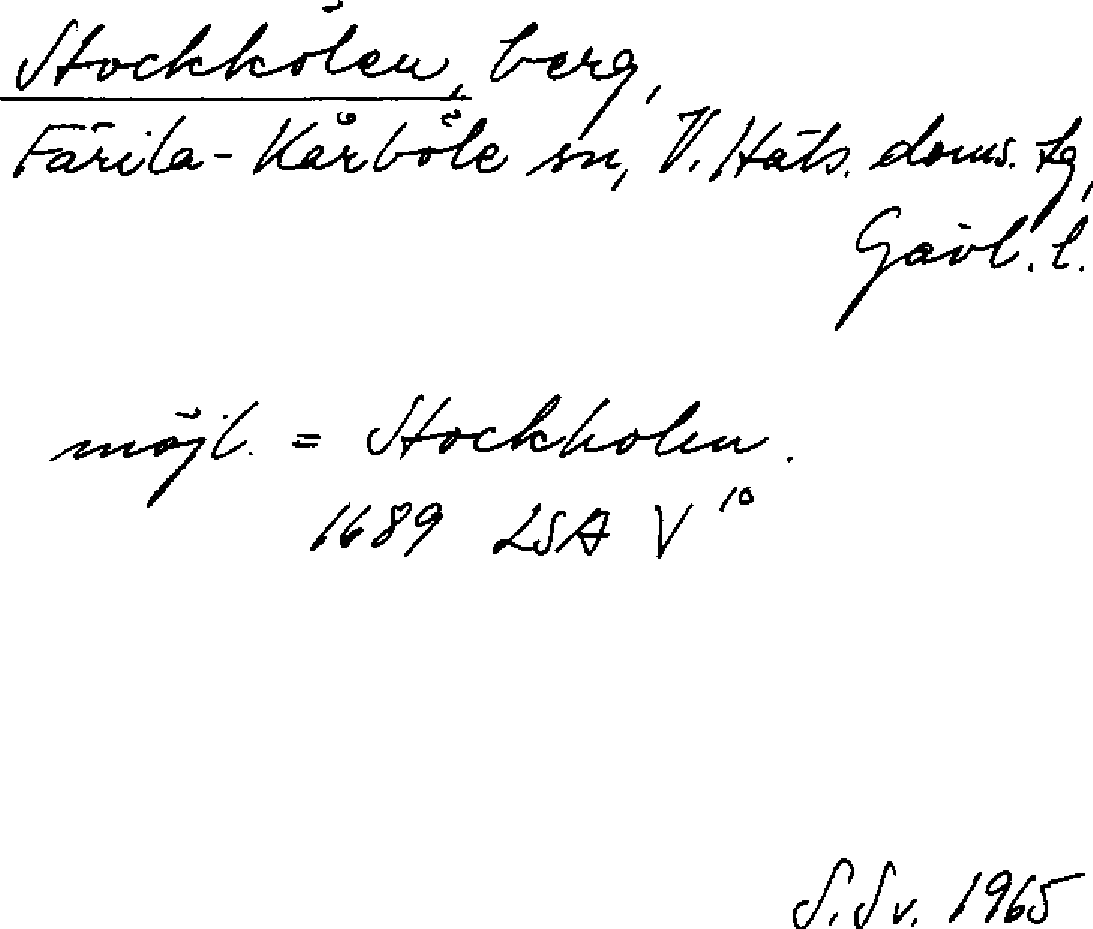 Stockkölen, berg,
Färila-Kårböle sn, V. Häls. doms. tg,
Gävl. l.
möjl. = Stockholen.
1689 LSA V 10
S. Sv. 1965